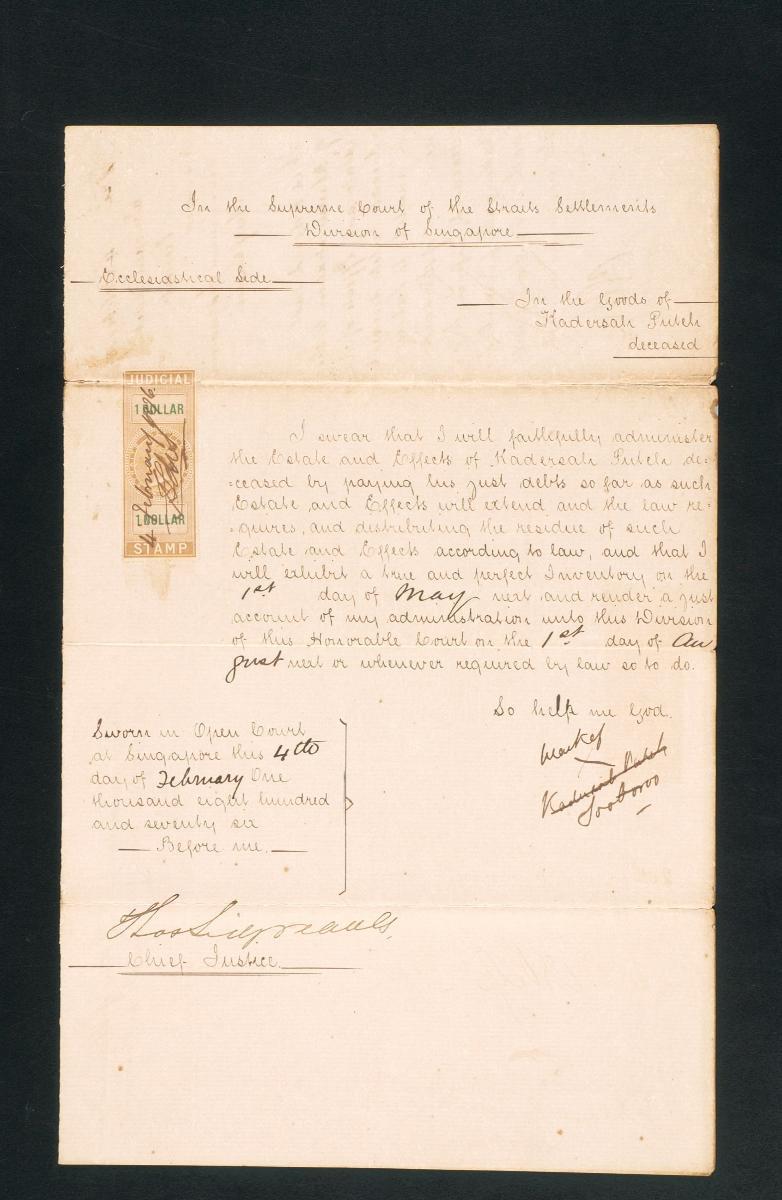 In the Supreme Court of the Straits Settlements
Division of Singapore
Ecclesiastical Side
In the Goods of
Kadersah Puteh
deceased
JUDICIAL
1 DOLLAR
4 February 1876
1 DOLLAR
STAMP
I swear that I will faithfully administer
the Estate and Effects of Kadersah Puteh de=
=ceased by paying his just debts so far as such
Estate and Effects will extend and the law re=
=quires, and distributing the residue of such
Estate and Effects according to law, and that I
will exhibit a true and perfect Inventory on the
1st day of May next and render a just
account of my administration unto this Division
of this Honorable Court on the 1st day of Au
gust next or whenever required by law so to do.
So help me God.
Mark of
Sworn in Open Court
at Singapore this 4th
day of February One
thousand eight hundred
and seventy six
Before me.
Thos Sidgreaves
Chief Justice